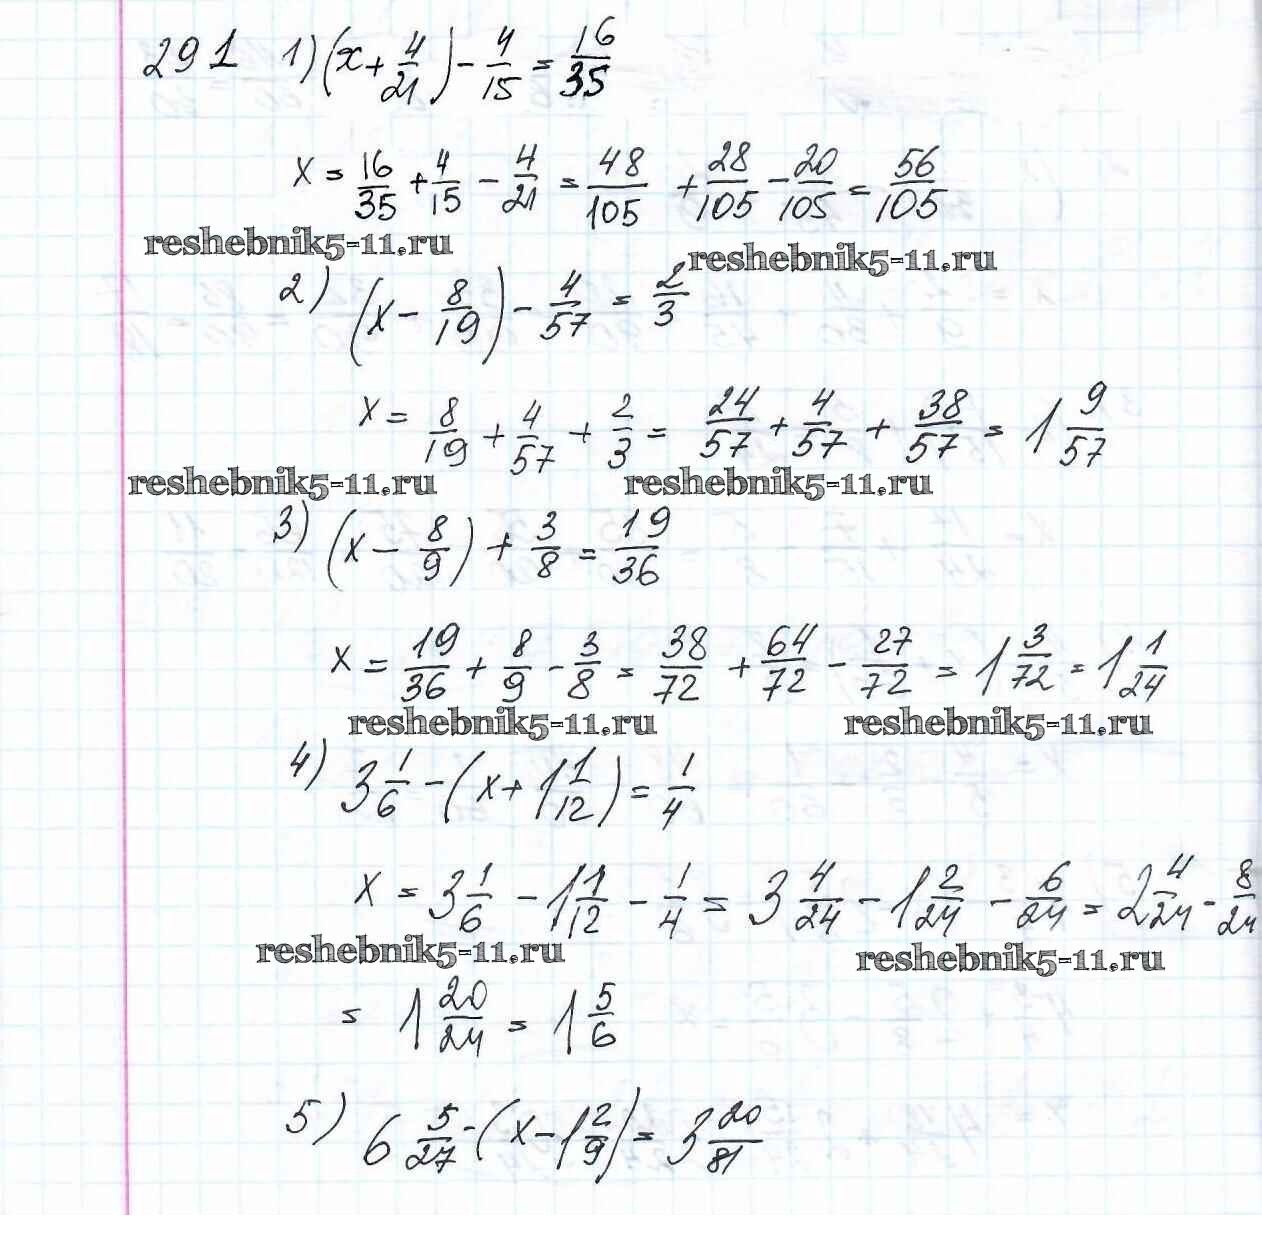 291 1) (x + 4/21) - 4/15 = 16/35
x = 16/35 + 4/15 - 4/21 = 48/105 + 28/105 - 20/105 = 56/105
reshebnik5-11.ru reshebnik5-11.ru
2) (x - 8/19) - 4/57 = 2/3
x = 8/19 + 4/57 + 2/3 = 24/57 + 4/57 + 38/57 = 1 9/57
reshebnik5-11.ru reshebnik5-11.ru
3) (x - 8/9) + 3/8 = 19/36
x = 19/36 + 8/9 - 3/8 = 38/72 + 64/72 - 27/72 = 1 3/72 = 1 1/24
reshebnik5-11.ru reshebnik5-11.ru
4) 3 1/6 - (x + 1 1/12) = 1/4
x = 3 1/6 - 1 1/12 - 1/4 = 3 4/24 - 1 2/24 - 6/24 = 2 4/24 - 8/24
reshebnik5-11.ru reshebnik5-11.ru
= 1 20/24 = 1 5/6
5) 6 5/27 - (x - 1 2/9) = 3 20/81